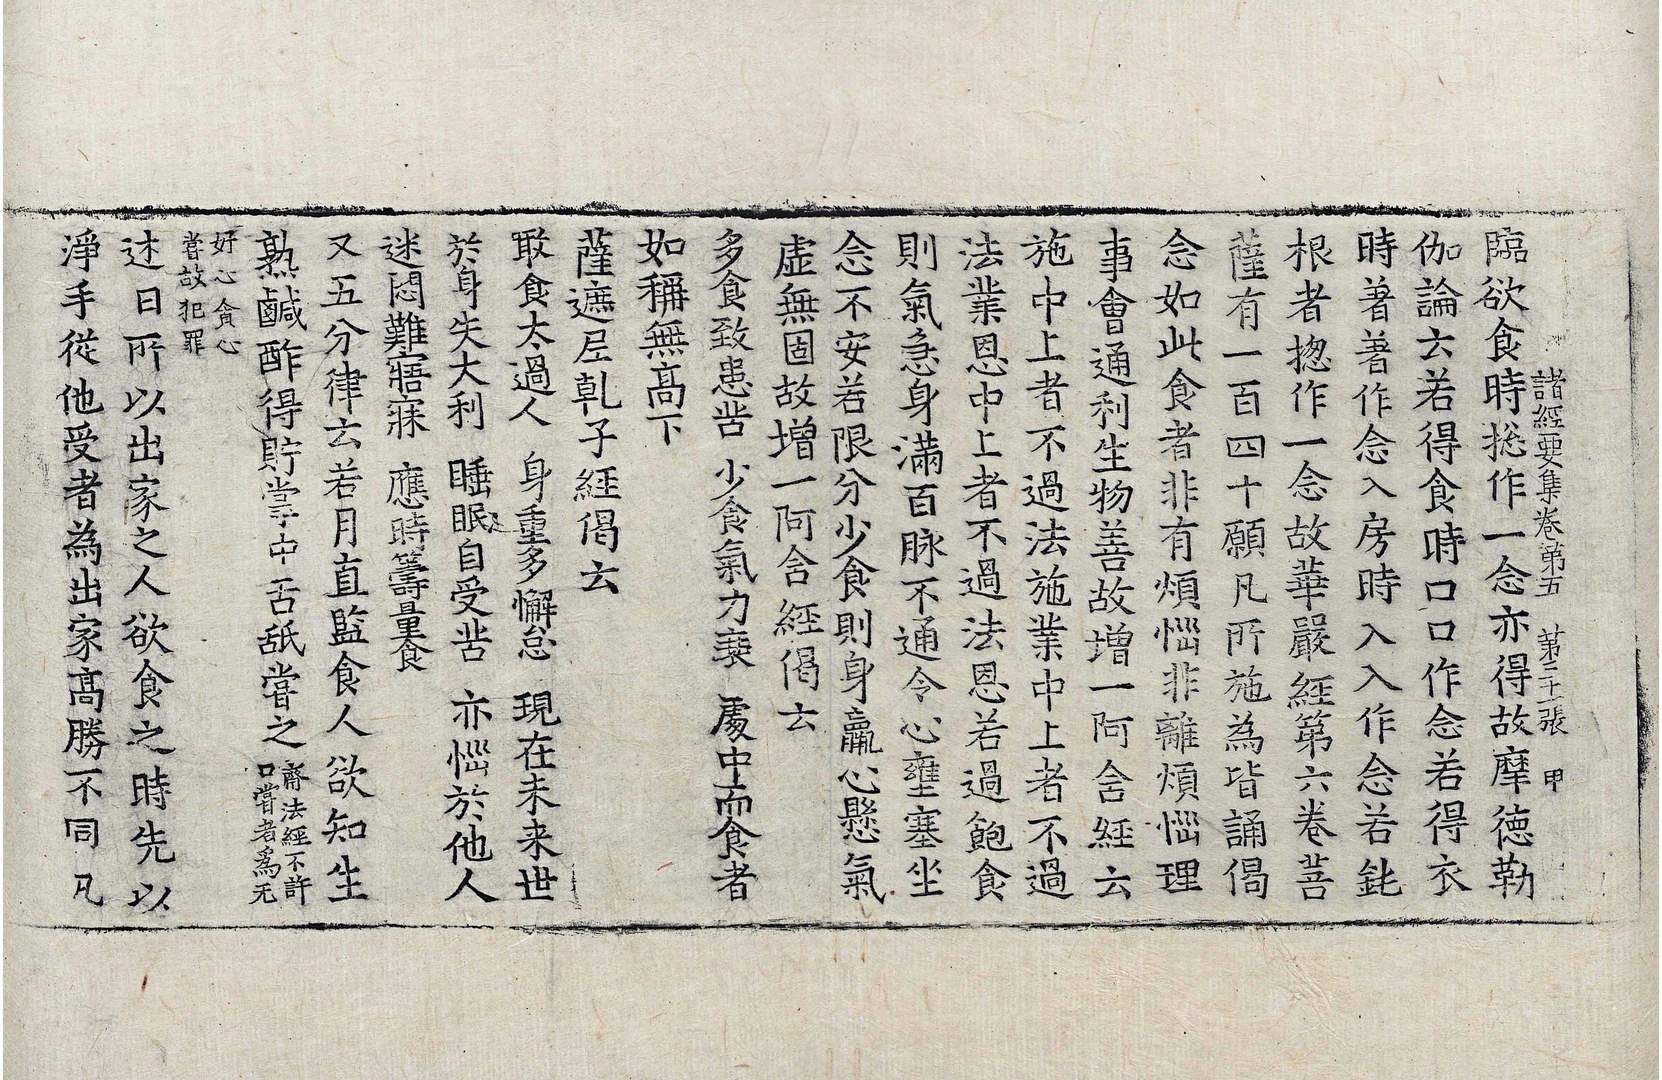 諸經要集卷第五 第二十張 甲
臨欲食時捴作一念亦得故摩德勒
伽論云若得食時口口作念若得衣
時著著作念入房時入入作念若鈍
根者捴作一念故華嚴經第六卷菩
薩有一百四十願凡所施為皆誦偈
念如此食者非有煩惱非離煩惱理
事會通利生物善故增一阿含經云
施中上者不過法施業中上者不過
法業恩中上者不過法恩若過飽食
則氣急身滿百脉不通令心壅塞坐
念不安若限分少食則身羸心懸氣
虛無固故增一阿含經偈云
多食致患苦 少食氣力衰 處中而食者
如稱無高下
薩遮尼乹子經偈云
噉食太過人 身重多懈怠 現在未来世
於身失大利 睡眠自受苦 亦惱於他人
迷悶難寤寐 應時籌量食
又五分律云若月直監食人欲知生
熟鹹酢得貯掌中舌舐嘗之齋法經不許
口嘗者為无
好心貪心
嘗故犯罪
述曰所以出家之人欲食之時先以
淨手從他受者為出家高勝不同凡